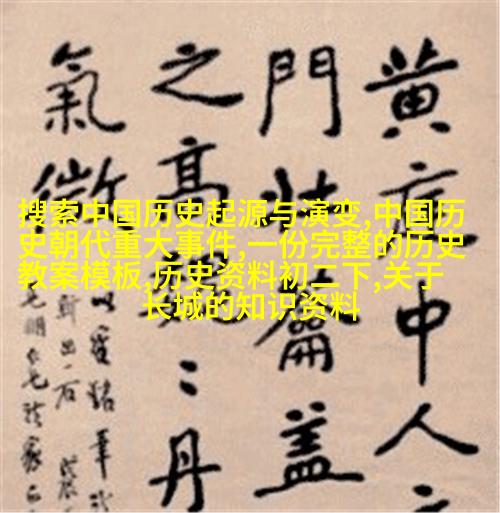 搜索中国历史起源与演变,中国历
史朝代重大事件,一份完整的历史
教案模板,历史资料初二下,关于
长城的知识资料
黄庭中人
門壮籥盖
之高巍〻丹
氣微